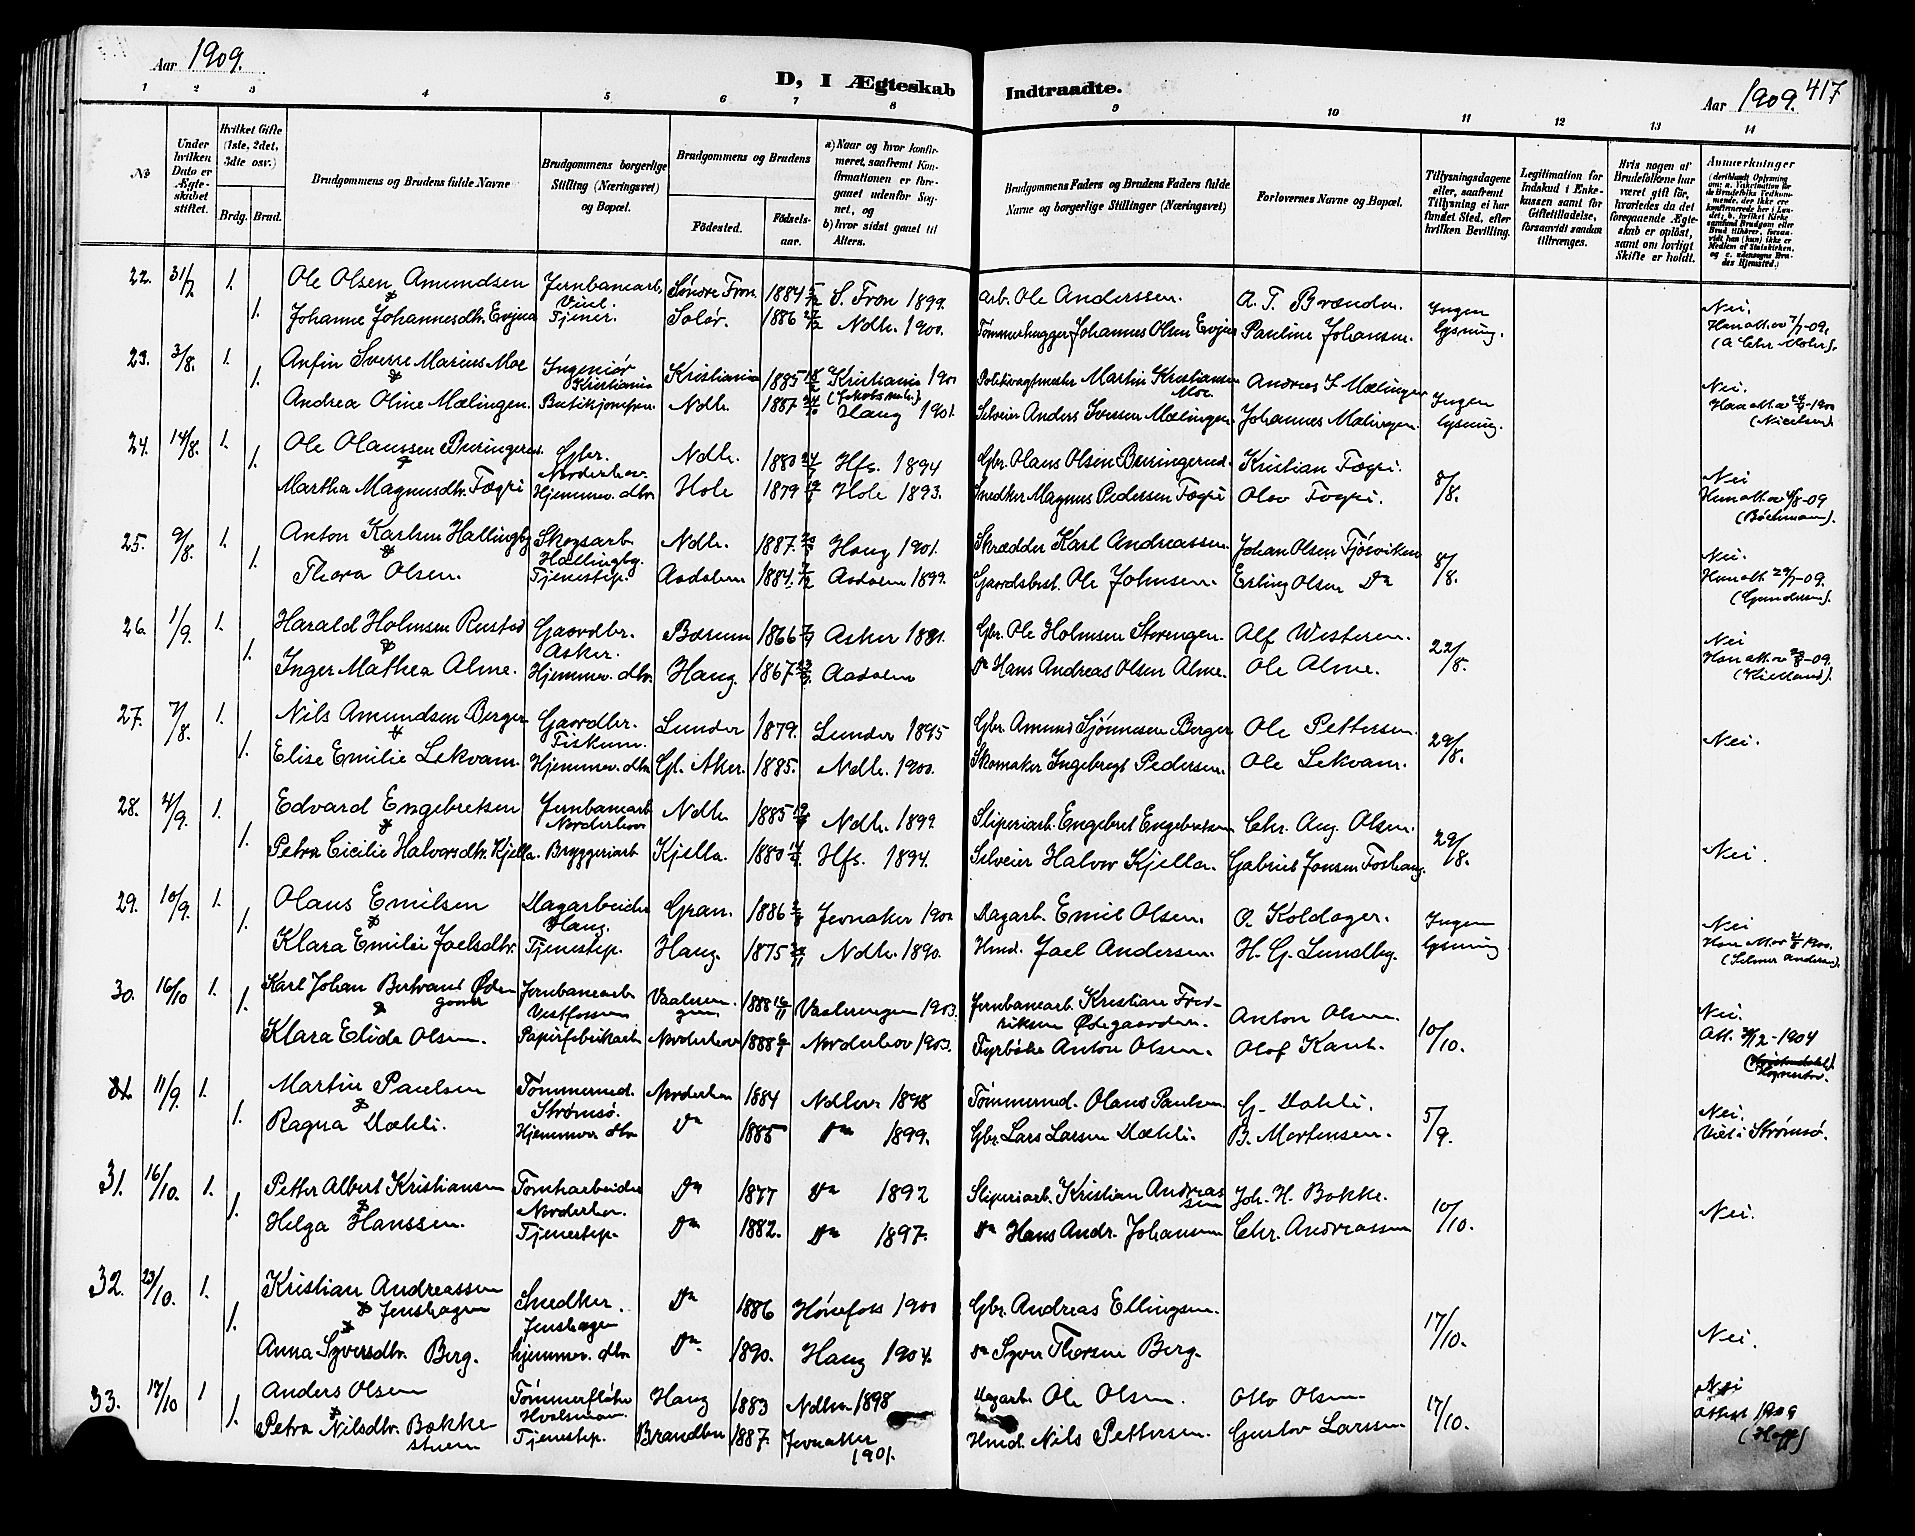 Aar 1909.
D, I Ægteskab Indtraadte.
Aar 1909. 417
1 2 3 4 5 6 7 8 9 10 11 12 13 14
No
Under hvilken Dato er Ægteskabet stiftet.
Hvilket Gifte (1ste, 2det, 3dte osv.)
Brdg. Brud.
Brudgommens og Brudens fulde Navne
Brudgommens borgerlige Stilling (Næringsvei) og Bopæl.
Brudgommens og Brudens
Födested. Födselsaar.
a) Naar og hvor konfirmeret, saafremt Konfirmationen er foregaaet udenfor Sognet, og
b) hvor sidst gaaet til Alters.
Brudgommens Faders og Brudens Faders fulde Navne og borgerlige Stillinger (Næringsvei)
Forlovernes Navne og Bopæl.
Tillysningsdagene eller, saafremt Tillysning ei har fundet Sted, efter hvilken Bevilling.
Legitimation for Indskud i Enkekassen samt for Giftetilladelse, forsaavidt saadan tiltrænges.
Hvis nogen af Brudefolkene har været gift för, hvorledes da det foregaaende Ægteskab er oplöst, samt om lovligt Skifte er holdt.
Anmærkninger
22. 31/7 1. Ole Olsen Amundsen Jernbanearb. Søndre Fron. 1884 S. Fron 1899. arb. Ole Anderssen. A. T. Brænden Ingen Nei.
& 1. Johanne Johannesdtr. Evjua Tjener. Solør. 1886 Ndh. 1900. Tømmerhugger Johannes Olsen Evjua Pauline Johansen. lysning. Han att. av 7/7-09. (A Chr Mohr).
23. 3/8. 1. Anfin Sverre Marius Moe Ingeniør Kristiania Kristiania 1885 18/2 Kristiania 1900 Politivagtmester Martin Kristiansen Moe. Andreas S. Mælingen Ingen Nei.
& 1. Andrea Oline Mælingen. Butikjomfru. Ndh. 1887 Haug 1901. Selveier Anders Iversen Mælingen Johannes Mælingen. lysning.
24. 14/8. 1. Ole Olaussen Buringerud. Gbr. Norderhov. Ndh. 1880 Hfs. 1894 Gbr. Olaus Olsen Buringerud. Kristian Fægri. 8/8. Nei
& 1. Martha Magnusdtr. Fægri Hjemmev. dtr. Hole 1879 Hole 1893. Snedker Magnus Pedersen Fægri Olav Fægri. Han att. av 4/8-09 (Böchmann).
25. 9/8. 1. Anton Karlsen Hallingby Skogsarb. Hallingby. Ndh. 1887. Haug 1901. Skrædder Karl Andreassen. Johan Olsen Tjösviken 8/8. Nei.
& 1. Thora Olsen. Tjenestep. Aadalen 1884. Aadalen 1899. Gaardsbest. Ole Johnsen. Erling Olsen Do Han att. 29/7-09. (Gundersen).
26. 1/9. 1. Harald Holmsen Rustad Gaardbr. Asker. Bærum 1866 Asker 1881. Gbr. Ole Holmsen Storengen. Alf Westeren. 22/8. Nei
& 1. Inger Mathea Alme. Hjemmev. dtr. Haug. 1867 Aadalen Do Hans Andreas Olsen Alme. Ole Alme. (Kielland).
27. 7/8. 1. Nils Amundsen Berger Gaardbr. Fiskum. Lunder 1879. Lunder 1895 Gbr. Amund Sjønnesen Berger Ole Pettersen. 29/8. Nei.
& 1. Elise Emilie Lekvam. Hjemmev. dtr. Gl. Aker. 1885. Ndh. 1900. Skomaker Ingebregt Pedersen. Ole Lekvam.
28. 4/9. 1. Edvard Engebretsen Jernbanearb. Norderhov Ndh 1885 Ndh. 1899 Sliperiarb. Engebret Engebretsen Chr. Aug. Olsen. 29/8. Nei.
& 1. Petra Cicilie Halvorsdtr. Kjella. Bryggeriarb Kjella. 1880 Hfs. 1894. Selveier Halvor Kjella. Gabriel Jonsen Foshaug.
29. 10/9. 1. Olaus Emilsen Dagarbeider Haug. Gran. 1886 Jevnaker 1900 Dagarb. Emil Olsen. O. Koldager. Ingen Nei
& 1. Klara Emilie Joelsdtr. Tjenestep. Haug. 1875 Ndh. 1890. Hmd. Joel Andersen. H. G. Lundby. lysning (Selmer Andersen).
30. 16/10 1. Karl Johan Bertrand Ødegaard Jernbanearb Vestfossen Vaalerengen 1888 Vaalerengen 1903. Jernbanearb. Kristian Fredriksen Ødegaarden. Anton Olsen. 10/10. Nei.
& 1. Klara Elida Olsen. Papirfabrikarb Norderhov 1888 Norderhov 1903. Fyrbøter Anton Olsen. Olof Kant. Att. 1904
31 11/9. 1. Martin Paulsen Tømmermd. Strømsø. Norderhov 1884 Ndhov 1898 Tømmermd. Olaus Paulsen G. Dæhli. 5/9. Nei.
& 1. Ragna Dæhli. Hjemmev dtr Do 1885 Do 1899. Gbr. Lars Larsen Dæhli. B. Mortensen. Viet i Strømsø.
31. 16/10. 1. Petter Albert Kristiansen Tomtarbeider Norderhov. Do 1877 Do 1892 Sliperiarb. Kristian Andreassen Joh. H. Bakke. 10/10. Nei.
& 1. Helga Hanssen. Tjenestep. Do 1882. Do 1897. Do Hans Andr. Johansen Chr. Andreassen
32. 23/10. 1. Kristian Andreassen Jenshagen Snedker. Jenshagen Do 1886 Hönefoss 1900 Gbr. Andreas Ellingsen. 17/10. Nei.
& 1. Anna Syversdtr. Berg. hjemmev. dtr. Do 1890. Haug 1904. Do Syver Thorsen Berg.
33. 17/10 1 Anders Olsen Tømmerfløter Haug 1883 Ndhov 1898 Dagarb. Ole Olsen. Otto Olsen 17/10. Nei
& 1. Petra Nilsdtr. Bakkestuen Tjenestep. Brandbu 1887. Jevnaker 1901. Hmd. Nils Pettersen. Gustav Larssen Attest 1909 (Hoff)